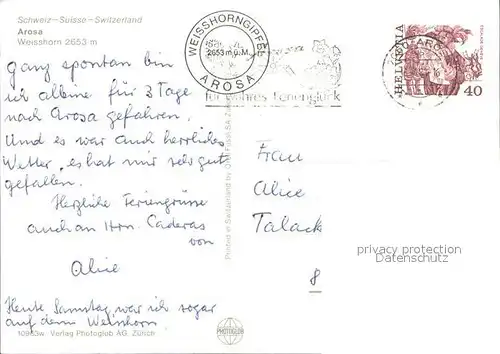 Schweiz – Suisse – Switzerland
Arosa
Weisshorn 2653 m
Ganz spontan bin
ich alleine für 3 Tage
nach Arosa gefahren.
Und es war auch herrliches
Wetter, es hat mir sehr gut
gefallen.
Herzliche Feriengrüsse
auch an Hrn. Caderas
von
Alice
Heute Samstag war ich sogar
auf dem Weisshorn.
10953w Verlag Photoglob AG, Zürich
Printed in Switzerland by
WEISSHORNGIPFEL
2653 m ü. M.
AROSA
für wahres Ferienglück
HELVETIA
40
AROSA
Frau
Alice
Talack
8
privacy protection
Datenschutz
PHOTOGLOB